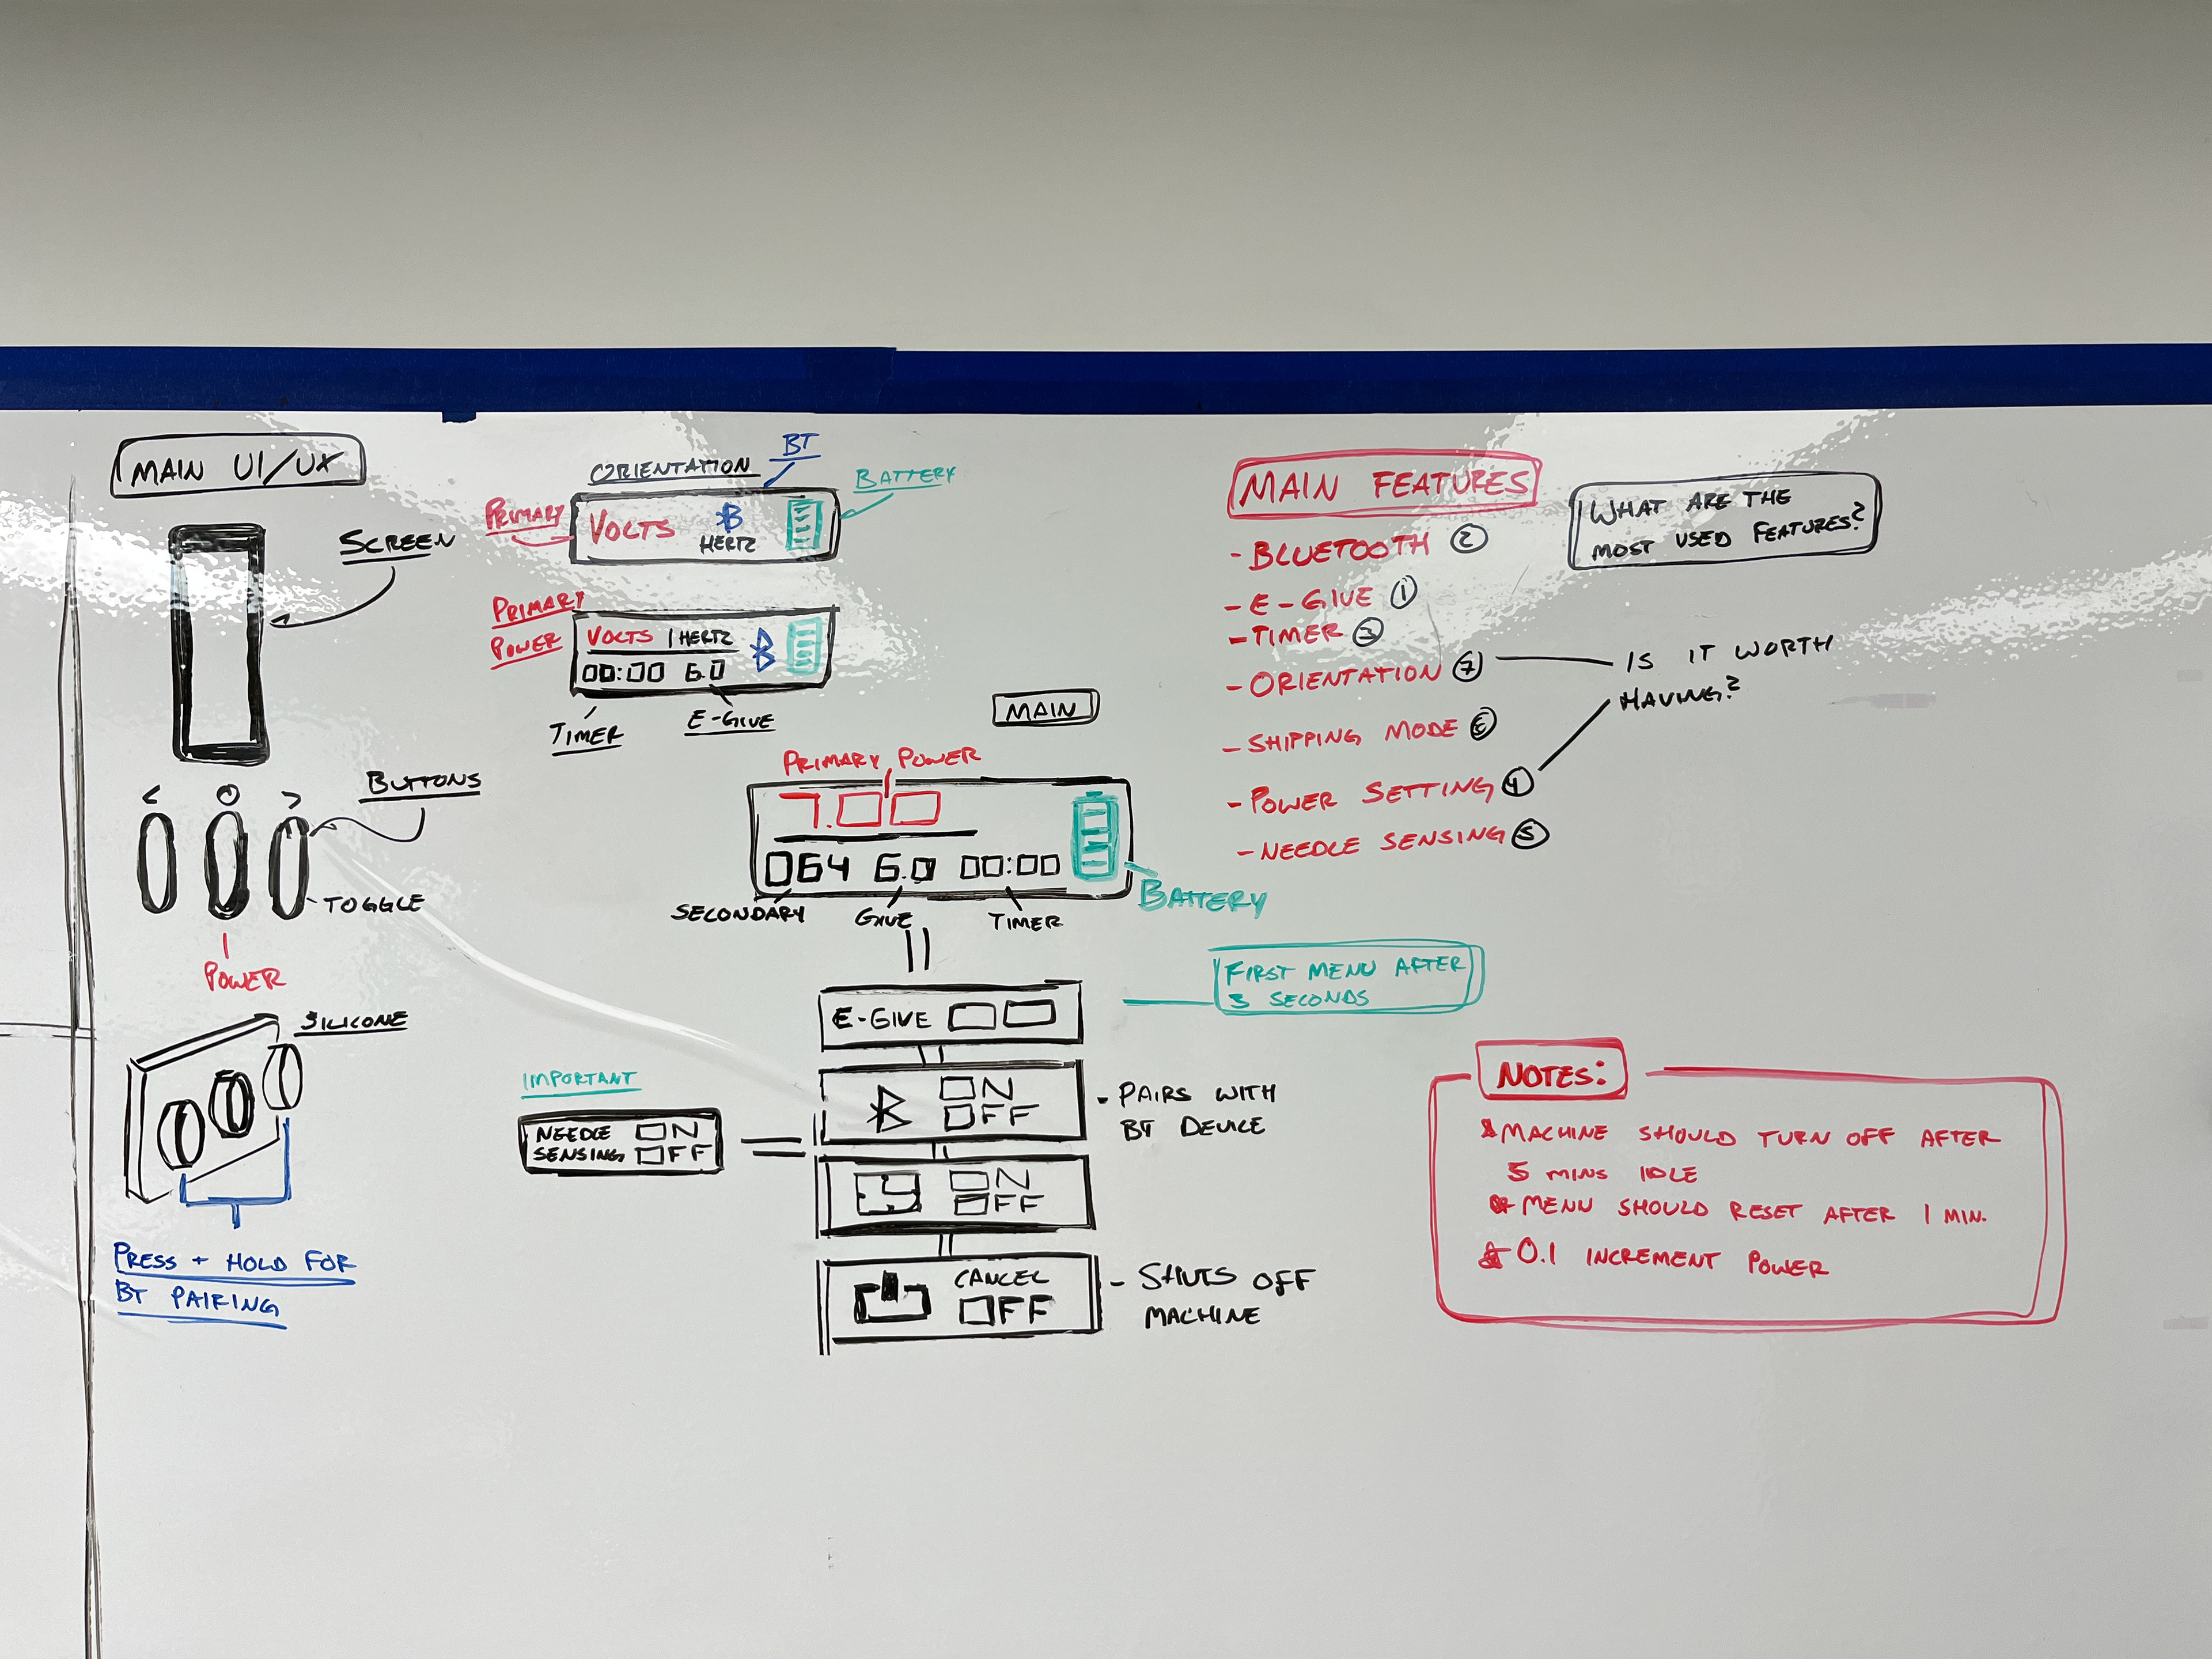 MAIN UI/UX
SCREEN
<
>
BUTTONS
TOGGLE
POWER
SILICONE
PRESS + HOLD FOR
BT PAIRING
ORIENTATION
BT
BATTERY
PRIMARY
VOLTS
HERTZ
PRIMARY
POWER
VOLTS | HERTZ
00:00 6.0
TIMER
E-GIVE
MAIN
PRIMARY POWER
7.00
064 6.0 00:00
SECONDARY
GIVE
TIMER
BATTERY
E-GIVE
FIRST MENU AFTER
SECONDS
IMPORTANT
NEEDLE ON
SENSING OFF
ON
OFF
- PAIRS WITH
BT DEVICE
ON
OFF
CANCEL
OFF
- SHUTS OFF
MACHINE
MAIN FEATURES
- BLUETOOTH 2
- E-GIVE 1
- TIMER 3
- ORIENTATION 7
- SHIPPING MODE
- POWER SETTING 4
- NEEDLE SENSING 5
WHAT ARE THE
MOST USED FEATURES?
IS IT WORTH
HAVING?
NOTES:
MACHINE SHOULD TURN OFF AFTER
5 MINS IDLE
MENU SHOULD RESET AFTER 1 MIN.
0.1 INCREMENT POWER